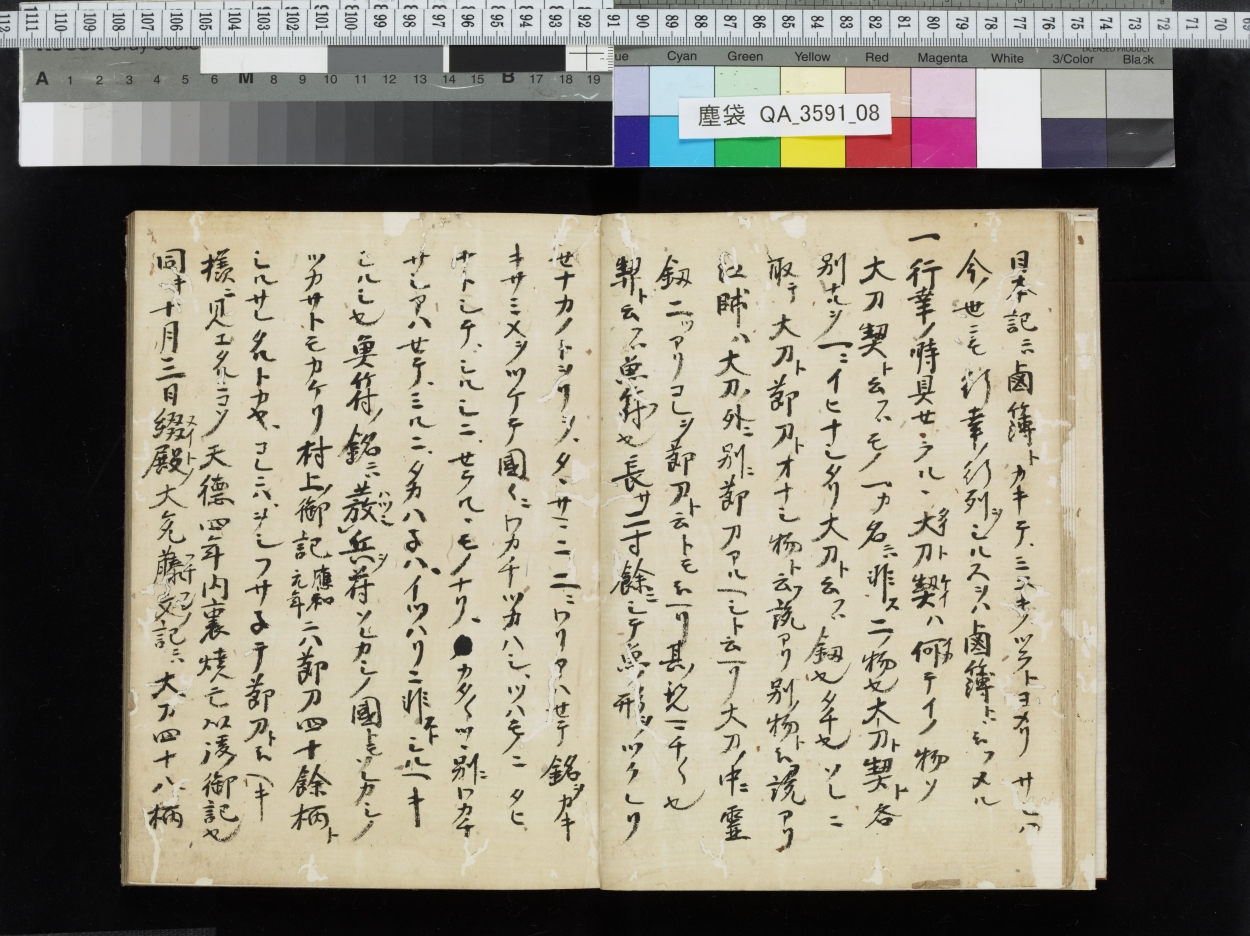 塵袋 QA_3591_08
日本記ニ鹵簿トカキテ、ミユキノツラトヨメリ サレハ
今ノ世ニモ行幸ノ行列ヲシルスヲハ鹵簿ト云フメル
一行幸ノ時具セラルヽ大刀契ハ何テイノ物ソ
大刀契ト云フハモノ一カ名ニ非ス二物也大刀ト契ト各
別ナルヲ一ニイヒナレタリ大刀ト云フハ釼也タチ也ソレニ
取テ大刀ト節刀トオナシ物ト云フ説アリ別ノ物ト云説アリ
江師ハ大刀ノ外ニ別ニ節刀アルヘシト云ヘリ大刀ノ中ニ霊
釼二ツアリコレヲ節刀ト云トモ云ヘリ其説マチ〱也
契ト云フハ魚符也長サ二寸餘ニシテ魚ノ形ヲツクレリ
セナカノトヲリヲ、タヽサマニ二ニワリアハセテ銘ヲカキ
キサミメヲツケテ國〱ニワカチツカハシ、ツハモノニタヒ
ナトシテ、シルシニ、セラルヽモノナリ、カタ〱ツヽ別ニワカチ
サシアハセテ、ミルニ、タカハネハ、イツハリニ非ストシルヘキ
シルシ也 魚符ノ銘ニ發兵符ソレカシノ國トモソレカシノ
ツカサトモカケリ村上ノ御記 應和元年 ニハ節刀四十餘柄ト
シルサレタルトカヤ、コレニハ、ヲシフサネテ節刀ト云ヘキ
様ニ見エタルニコソ 天徳四年内裏焼亡以後御記也
同キ十月三日綴殿ノ大允藤文記ニ大刀四十八柄